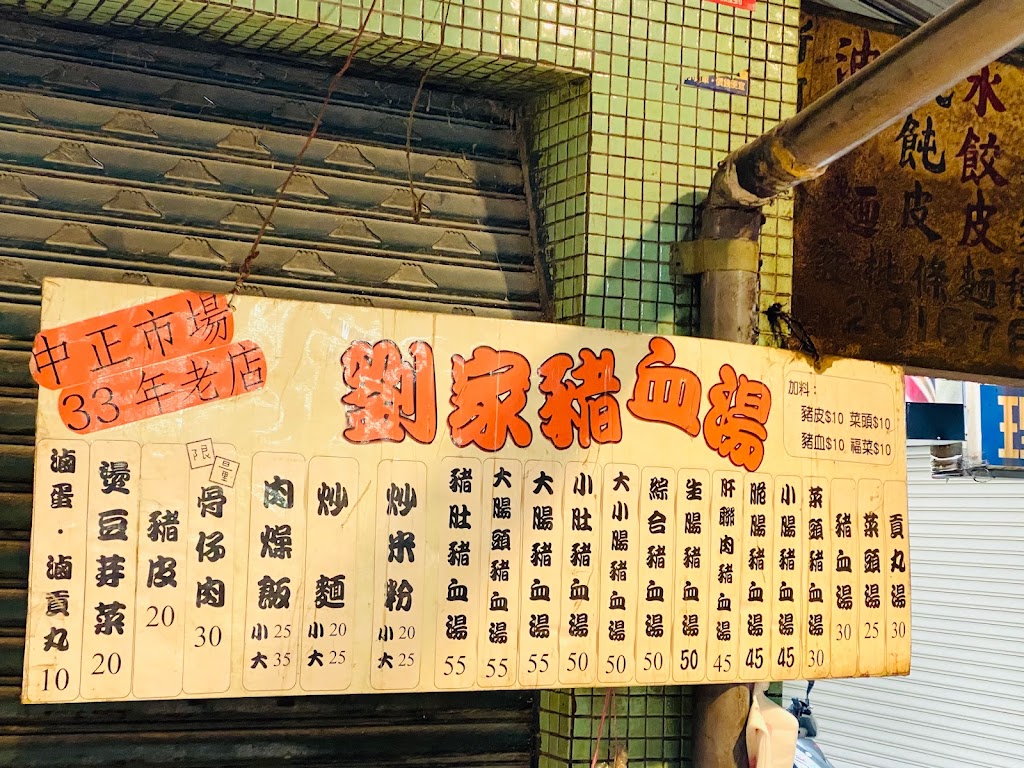 中正市場
33年老店
劉家豬血湯
加料：
豬皮$10 菜頭$10
豬血$10 福菜$10
貢丸湯 30
菜頭湯 25
豬血湯 30
菜頭豬血湯 30
小腸豬血湯 45
脆腸豬血湯 45
肝聯肉豬血湯 45
生腸豬血湯 50
綜合豬血湯 50
大小腸豬血湯 50
小肚豬血湯 50
大腸豬血湯 55
大腸頭豬血湯 55
豬肚豬血湯 55
炒米粉 小20 大25
炒麵 小20 大25
肉燥飯 小25 大35
限量
骨仔肉 30
豬皮 20
燙豆芽菜 20
滷蛋．滷貢丸 10
水餃皮
飩皮
麵